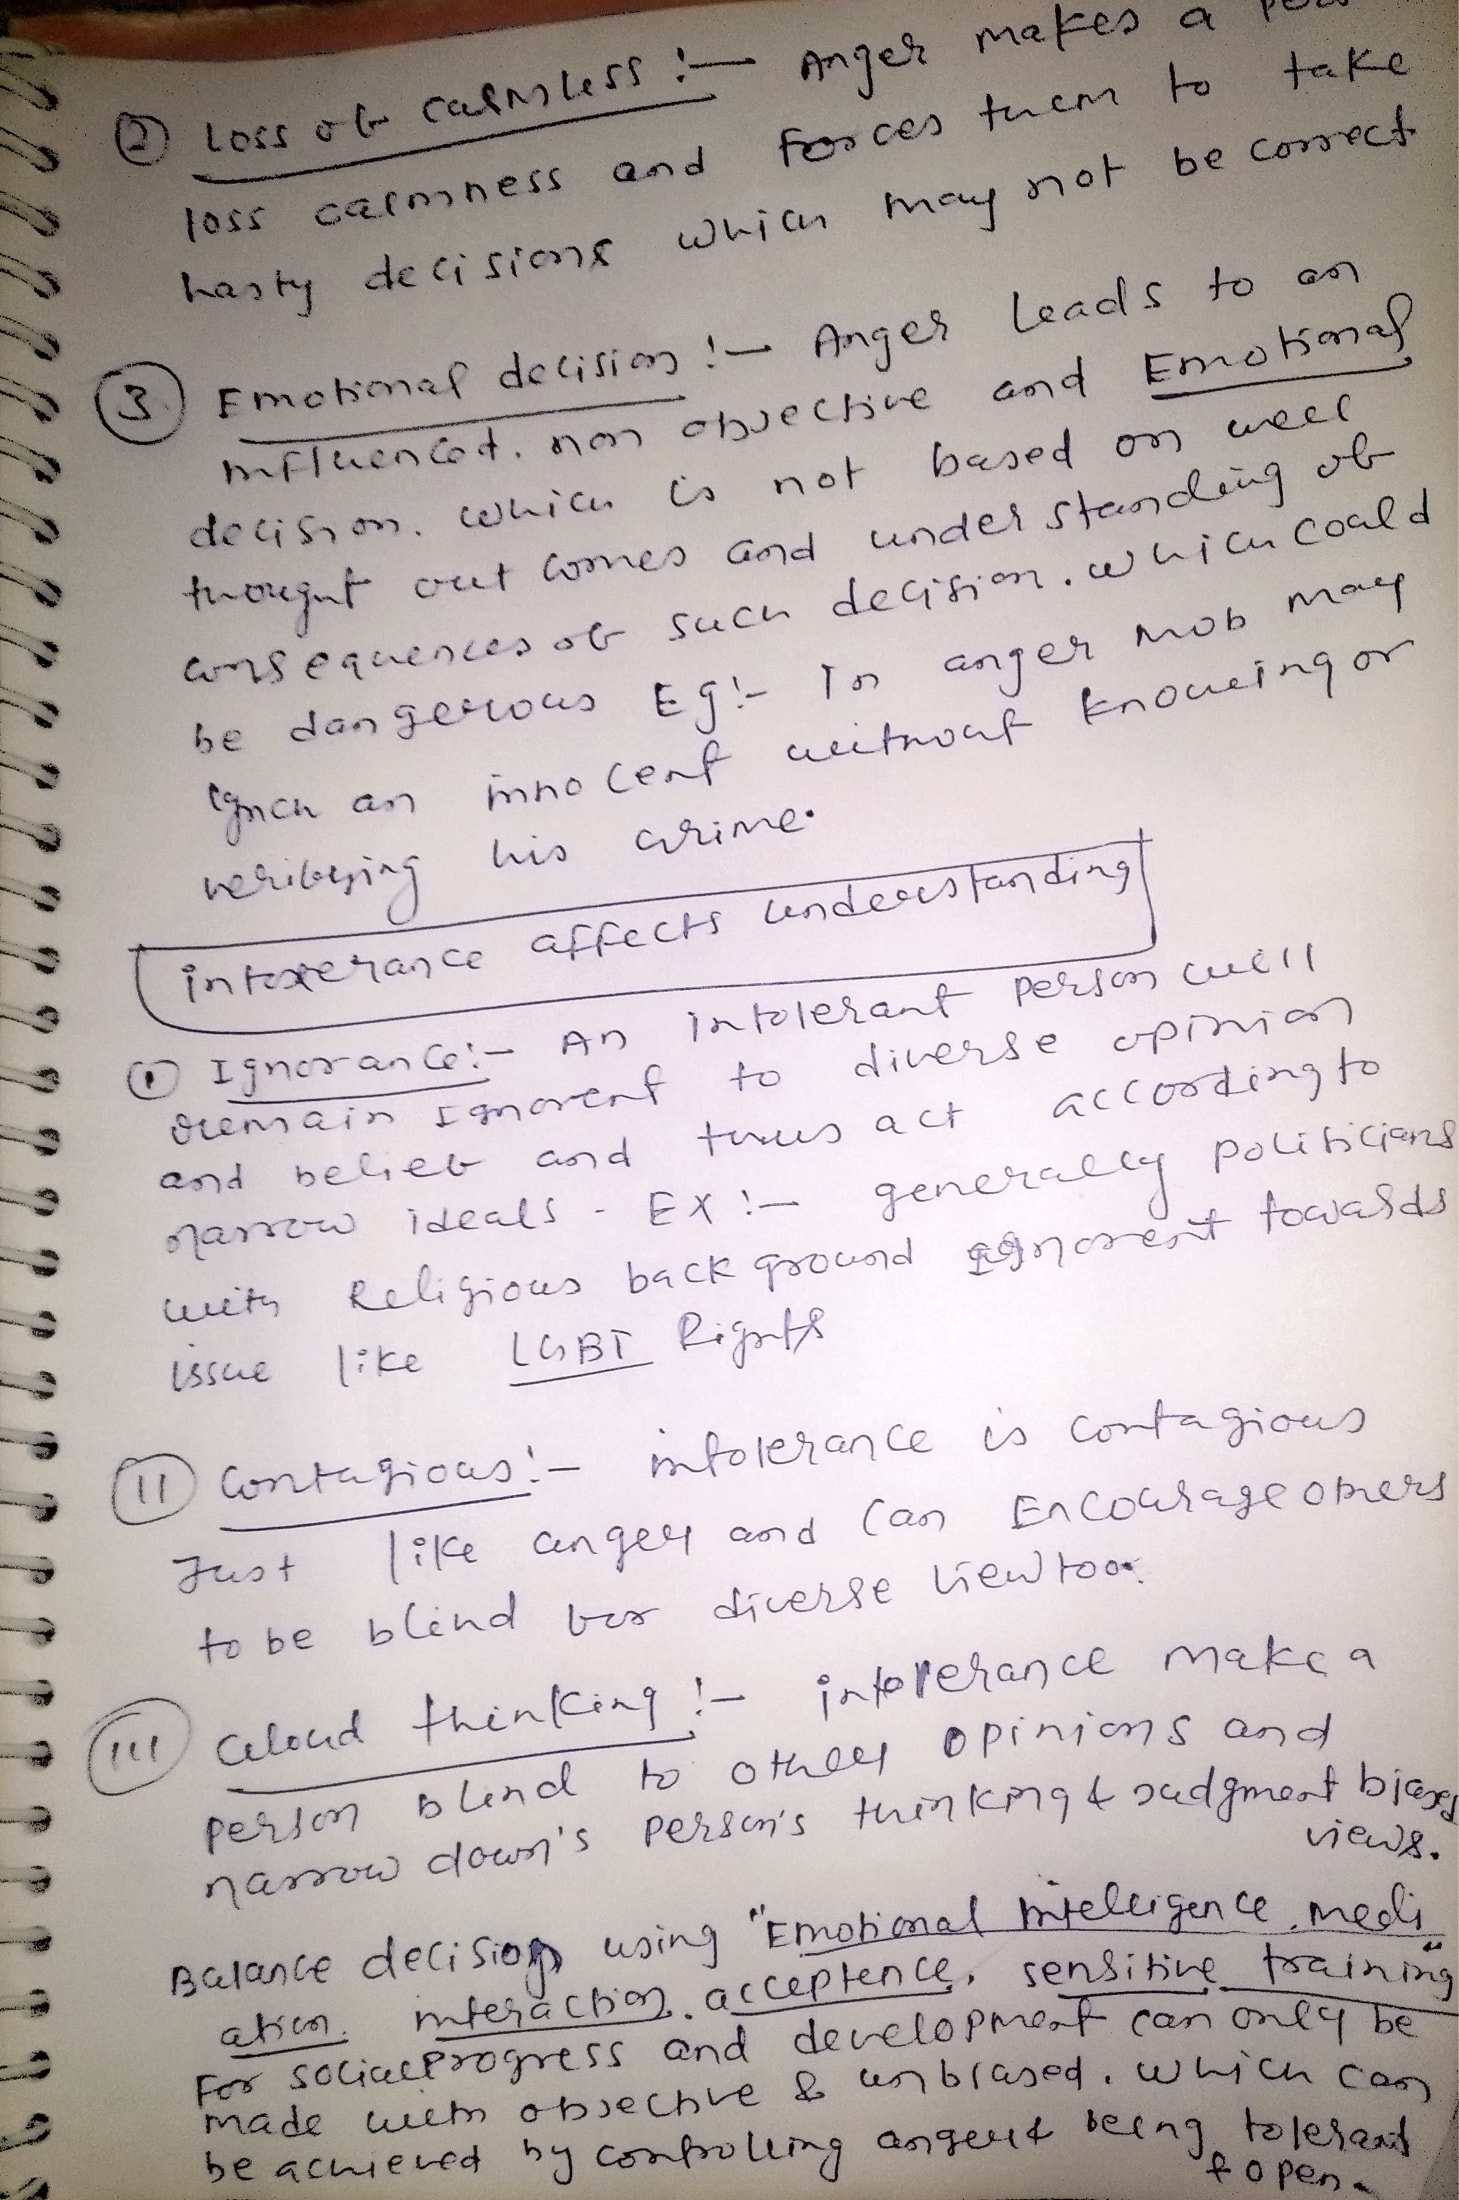 ② Loss of calmless :- Anger makes a
loss calmness and forces them to take
hasty decisions which may not be correct
③ Emotional decision :- Anger leads to an
influenced, non objective and Emotional
decision. which is not based on well
thought out comes and understanding of
consequences of such decision. which could
be dangerous Eg:- In anger mob may
lynch an innocent without knowing or
verifying his crime.
intolerance affects understanding
① Ignorance:- An intolerant person will
remain Ignorent to diverse opinion
and belief and thus act according to
narrow ideals - EX :- generally politicians
with Religious back ground ignorent towards
issue like LGBT Rights
(II) Contagious:- intolerance is contagious
Just like anger and can Encourage others
to be blind for diverse view too.
(III) Cloud thinking :- intolerance make a
person blind to other opinions and
narrow down's person's thinking & Judgment biases
views.
Balance decision using "Emotional intelligence, medi
ation. interaction. acceptence, sensitive training"
For social Progress and development can only be
made with objective & unbiased. which can
be achieved by controlling anger & being tolerant
& open.